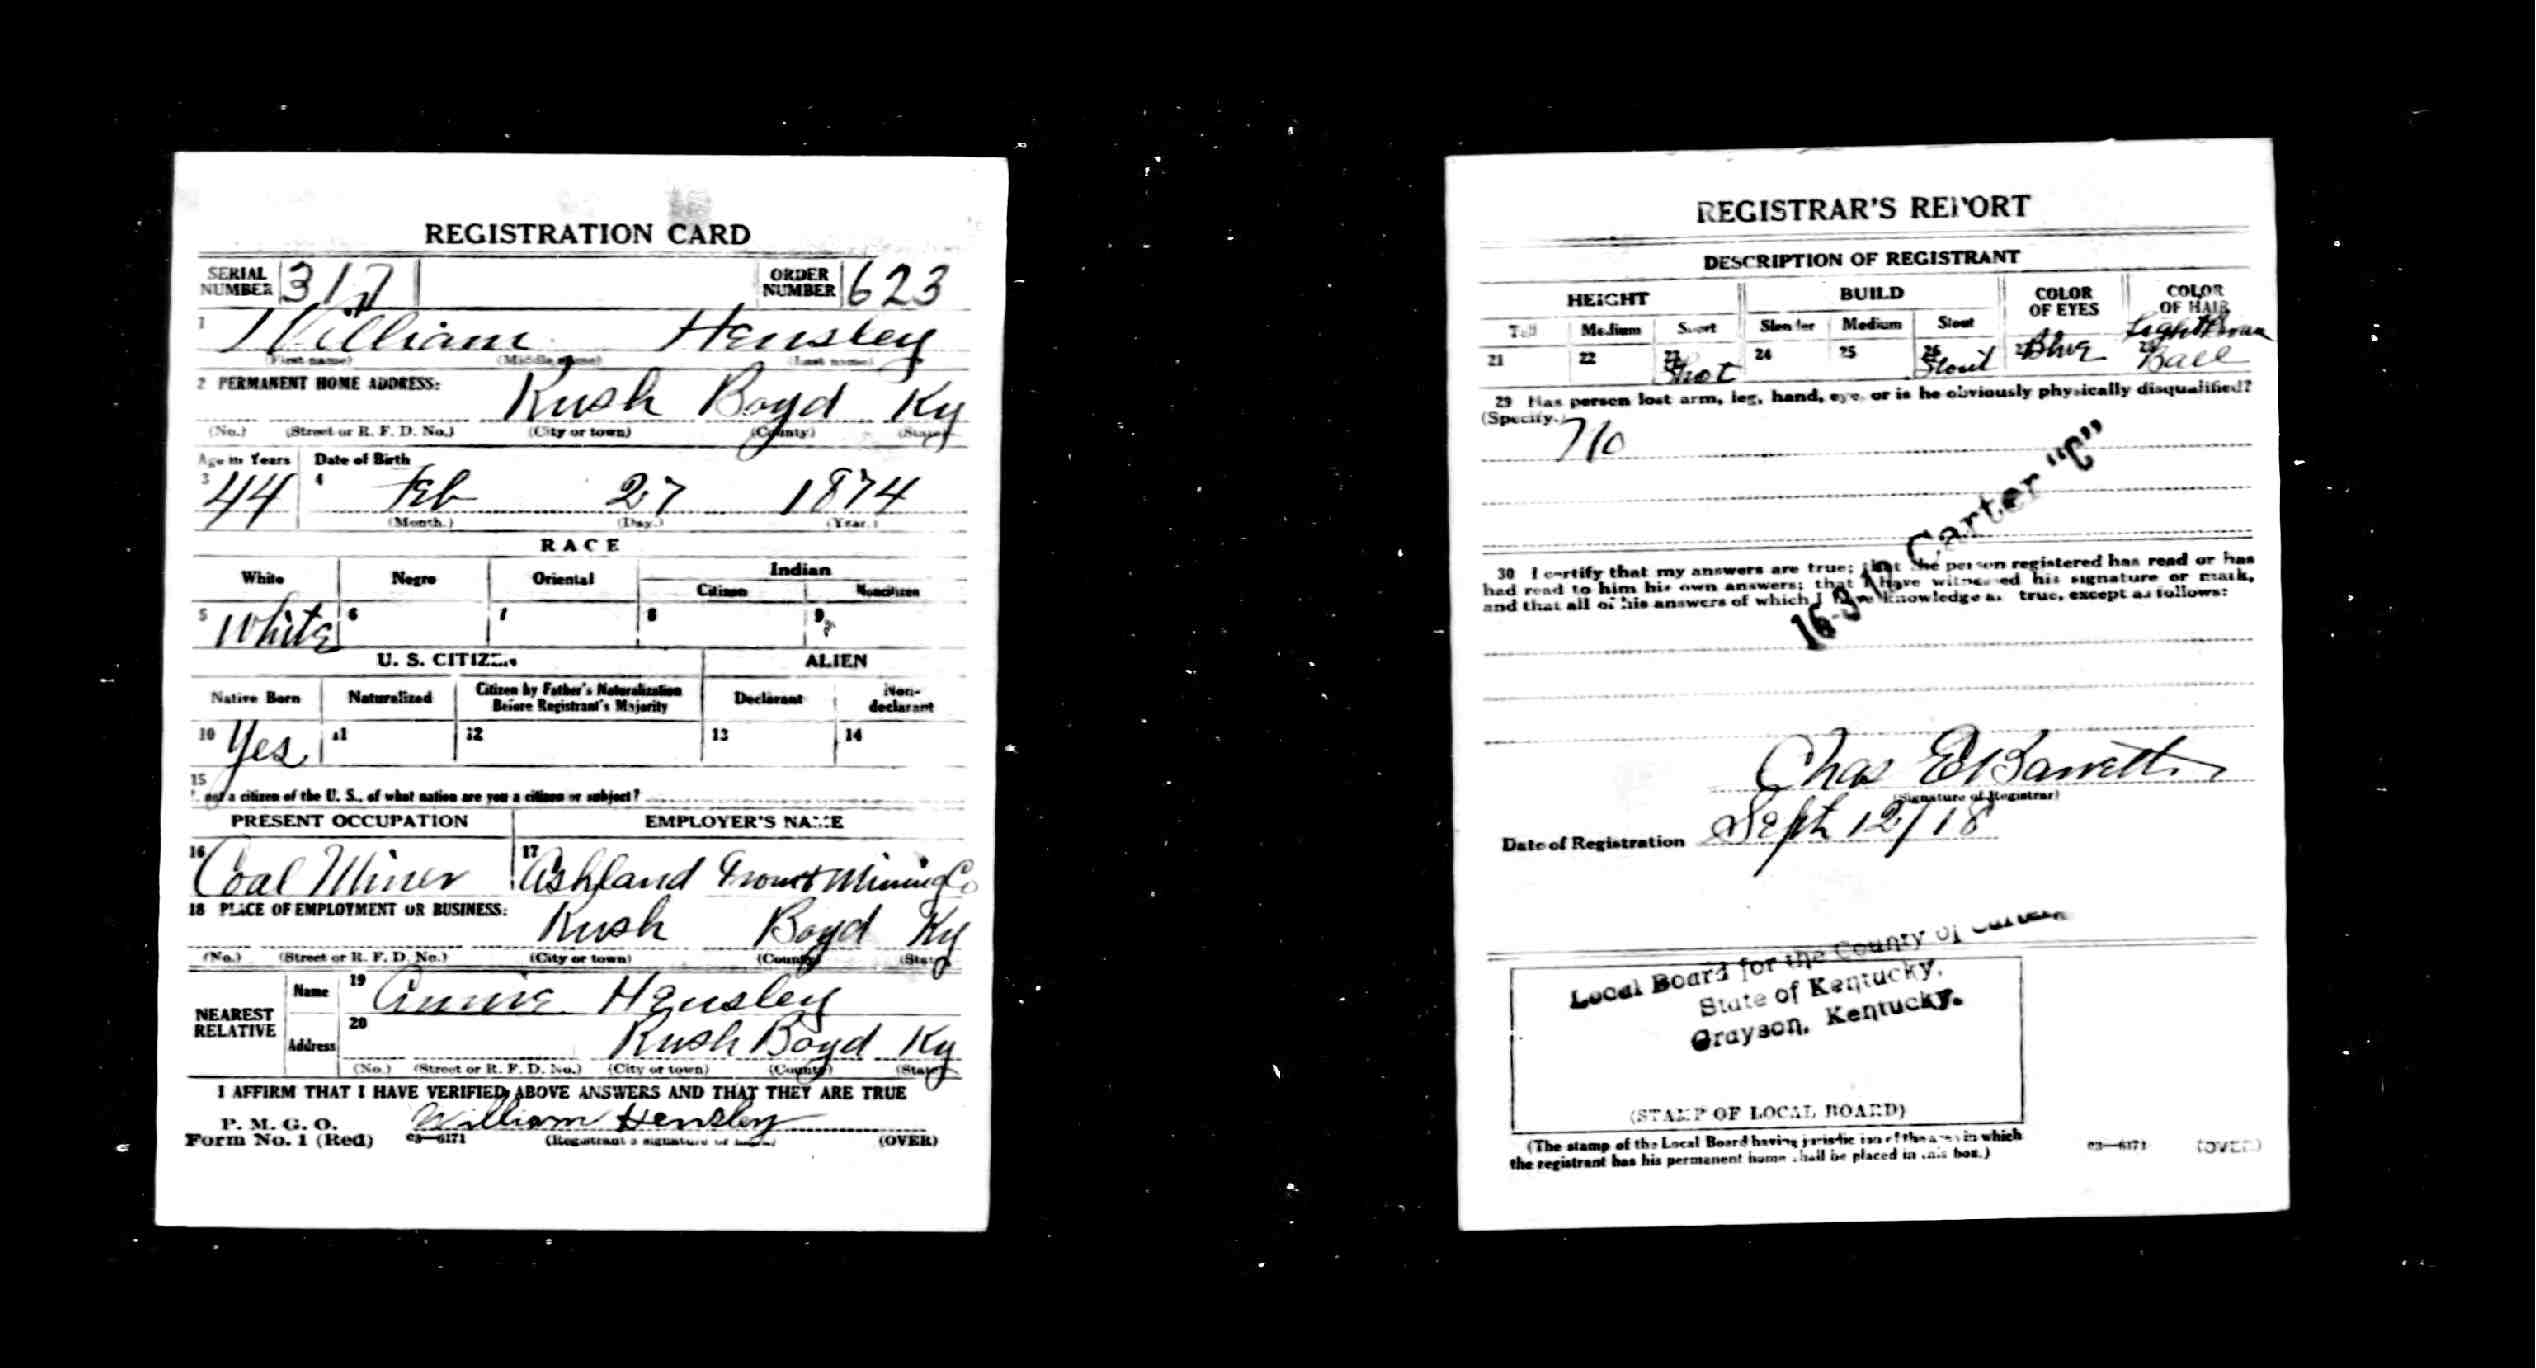 REGISTRATION CARD
SERIAL NUMBER 317 ORDER NUMBER 623
1 William Hensley
(First name) (Middle name) (Last name)
2 PERMANENT HOME ADDRESS:
Rush Boyd Ky
(No.) (Street or R. F. D. No.) (City or town) (County) (State)
Age in Years Date of Birth
3 44 4 Feb 27 1874
(Month.) (Day.) (Year.)
RACE
White Negro Oriental Indian
Citizen Noncitizen
5 White 6 7 8 9
U. S. CITIZEN ALIEN
Native Born Naturalized Citizen by Father's Naturalization Before Registrant's Majority Declarant Non-declarant
10 Yes 11 12 13 14
15
If not a citizen of the U. S., of what nation are you a citizen or subject?
PRESENT OCCUPATION EMPLOYER'S NAME
16 Coal Miner 17 Ashland Iron & Mining Co
18 PLACE OF EMPLOYMENT OR BUSINESS:
Rush Boyd Ky
(No.) (Street or R. F. D. No.) (City or town) (County) (State)
NEAREST RELATIVE Name 19 Annie Hensley
Address 20 Rush Boyd Ky
(No.) (Street or R. F. D. No.) (City or town) (County) (State)
I AFFIRM THAT I HAVE VERIFIED ABOVE ANSWERS AND THAT THEY ARE TRUE
P. M. G. O.
Form No. 1 (Red) 03—6171 William Hensley
(Registrant's signature or mark) (OVER)
REGISTRAR'S REPORT
DESCRIPTION OF REGISTRANT
HEIGHT BUILD COLOR OF EYES COLOR OF HAIR
Tall Medium Short Slender Medium Stout
21 22 23 Shot 24 25 26 Stout 27 Blue 28 Light Brown
Ball
29 Has person lost arm, leg, hand, eye, or is he obviously physically disqualified?
(Specify.) No
16-3-11 Carter "C"
30 I certify that my answers are true; that the person registered has read or has
had read to him his own answers; that I have witnessed his signature or mark,
and that all of his answers of which I have knowledge are true, except as follows:
Chas E Barrett
(Signature of Registrar)
Date of Registration Sept 12/18
Local Board for the County of Carter,
State of Kentucky,
Grayson, Kentucky.
(STAMP OF LOCAL BOARD)
(The stamp of the Local Board having jurisdiction of the area in which
the registrant has his permanent home shall be placed in this box.)
03—6171 (OVER)